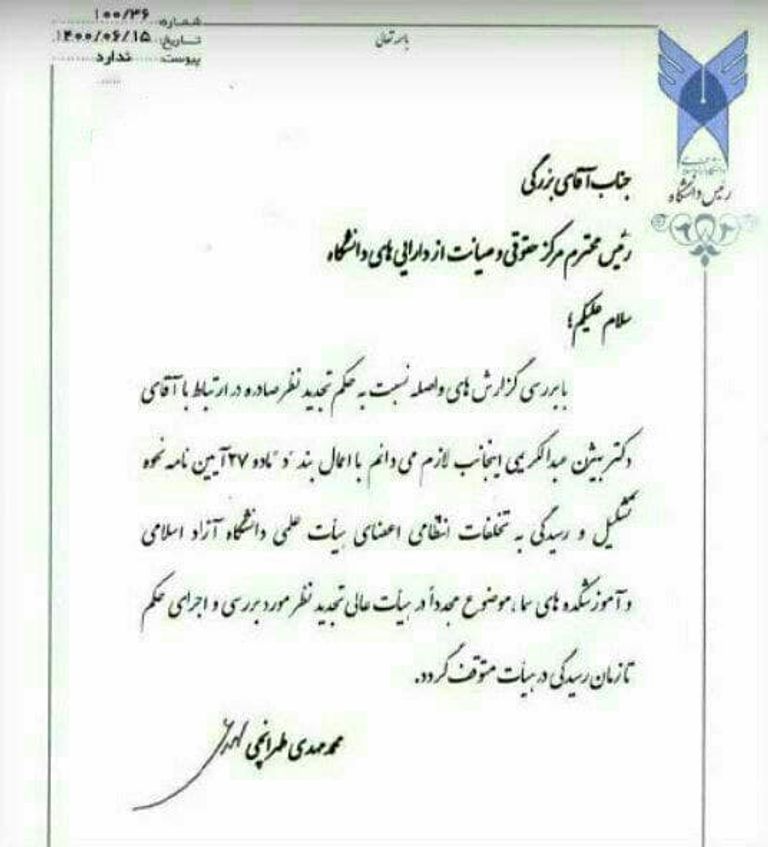 شماره ۱۰۰/۳۶
تاریخ: ۱۴۰۰/۰۶/۱۵
پیوست: ندارد
باسمه تعالی
دانشگاه آزاد اسلامی
رئیس دانشگاه
جناب آقای بزرگی
رئیس محترم مرکز حقوقی و صیانت از دارایی های دانشگاه
سلام علیکم؛
با بررسی گزارش های واصله نسبت به حکم تجدید نظر صادره در ارتباط با آقای
دکتر بیژن عبدالکریمی اینجانب لازم می دانم با اعمال بند "د" ماده ۲۷ آیین نامه نحوه
تشکیل و رسیدگی به تخلفات انتظامی اعضای هیأت علمی دانشگاه آزاد اسلامی
و آموزشکده های سما، موضوع مجدداً در هیأت عالی تجدید نظر مورد بررسی و اجرای حکم
تا زمان رسیدگی در هیأت متوقف گردد.
محمد مهدی طهرانچی